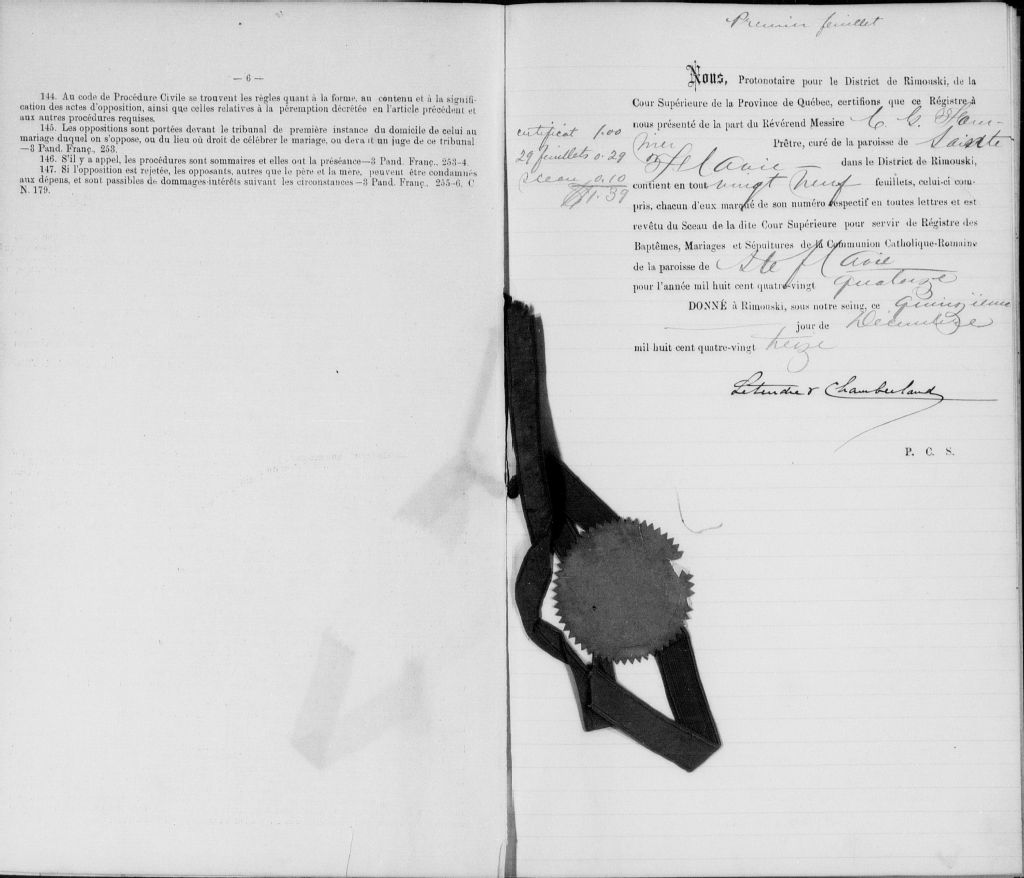 — 6 —
144. Au code de Procédure Civile se trouvent les règles quant à la forme, au contenu et à la signifi-
cation des actes d'opposition, ainsi que celles relatives à la péremption décrétée en l'article précédent et
aux autres procédures requises.
145. Les oppositions sont portées devant le tribunal de première instance du domicile de celui au
mariage duquel on s'oppose, ou du lieu où droit de célébrer le mariage, ou devant un juge de ce tribunal
—3 Pand. Franç., 253.
146. S'il y a appel, les procédures sont sommaires et elles ont la préséance—3 Pand. Franç., 253-4.
147. Si l'opposition est rejetée, les opposants, autres que le père et la mère, peuvent être condamnés
aux dépens, et sont passibles de dommages-intérêts suivant les circonstances—3 Pand. Franç. 255-6. C
N. 179.
Premier feuillet
Nous, Protonotaire pour le District de Rimouski, de la
Cour Supérieure de la Province de Québec, certifions que ce Régistre à
nous présenté de la part du Révérend Messire
Prêtre, curé de la paroisse de Sainte
Flavie dans le District de Rimouski,
contient en tout vingt neuf feuillets, celui-ci com-
pris, chacun d'eux marqué de son numéro respectif en toutes lettres et est
revêtu du Sceau de la dite Cour Supérieure pour servir de Régistre des
Baptêmes, Mariages et Sépultures de la Communion Catholique-Romaine
de la paroisse de Ste Flavie
pour l'année mil huit cent quatre-vingt quatorze
DONNÉ à Rimouski, sous notre seing, ce quinzième
jour de Décembre
mil huit cent quatre-vingt treize
Letendre & Chamberland
P. C. S.
certificat 1.00
29 feuillets 0.29
Sceau 0.10
$1.39